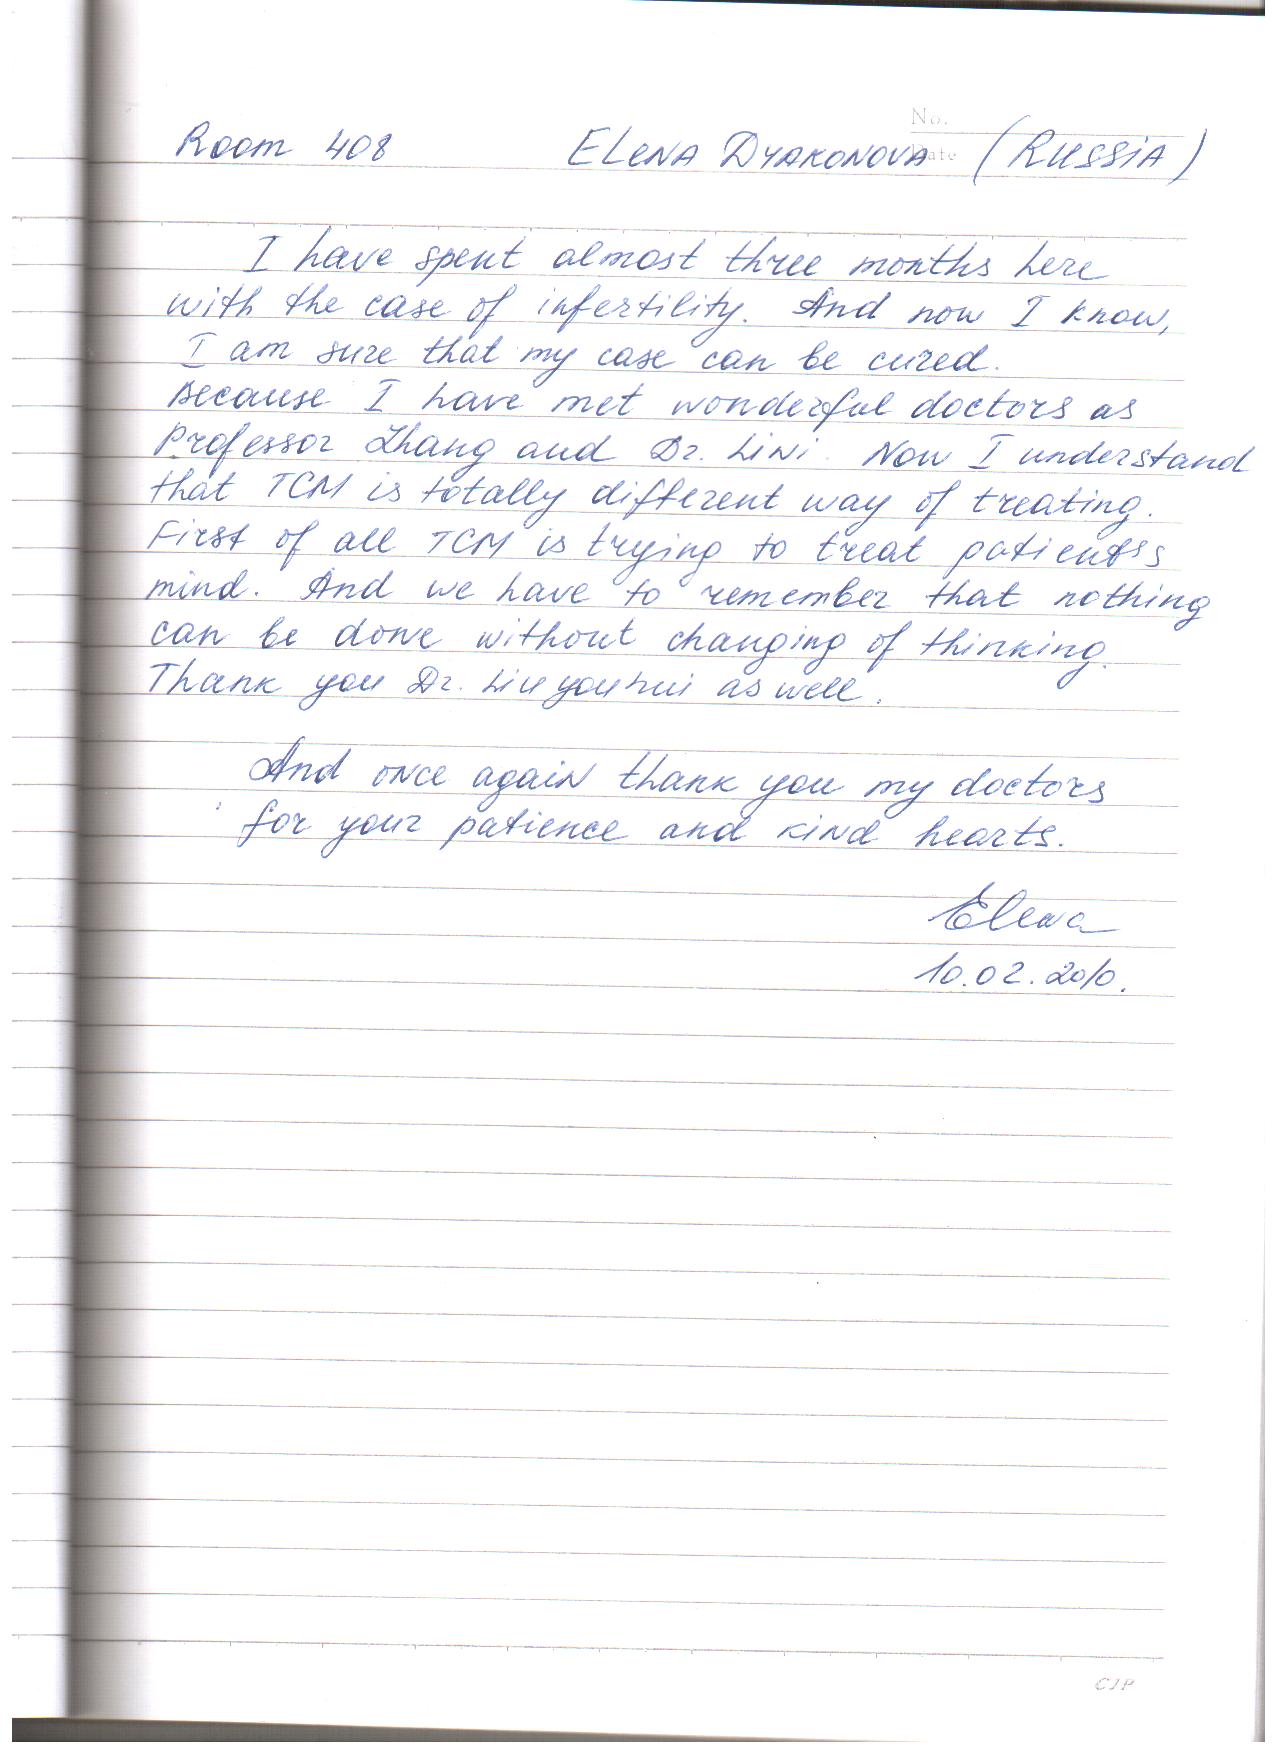 No.
Room 408 ELENA DYAKONOVA (RUSSIA)
Date
I have spent almost three months here
with the case of infertility. And now I know,
I am sure that my case can be cured.
Because I have met wonderful doctors as
Professor Zhang and Dr. LiNi. Now I understand
that TCM is totally different way of treating.
First of all TCM is trying to treat patient's
mind. And we have to remember that nothing
can be done without changing of thinking.
Thank you Dr. Liu you hui as well.
And once again thank you my doctors
for your patience and kind hearts.
Elena
10.02.2010.
CJP